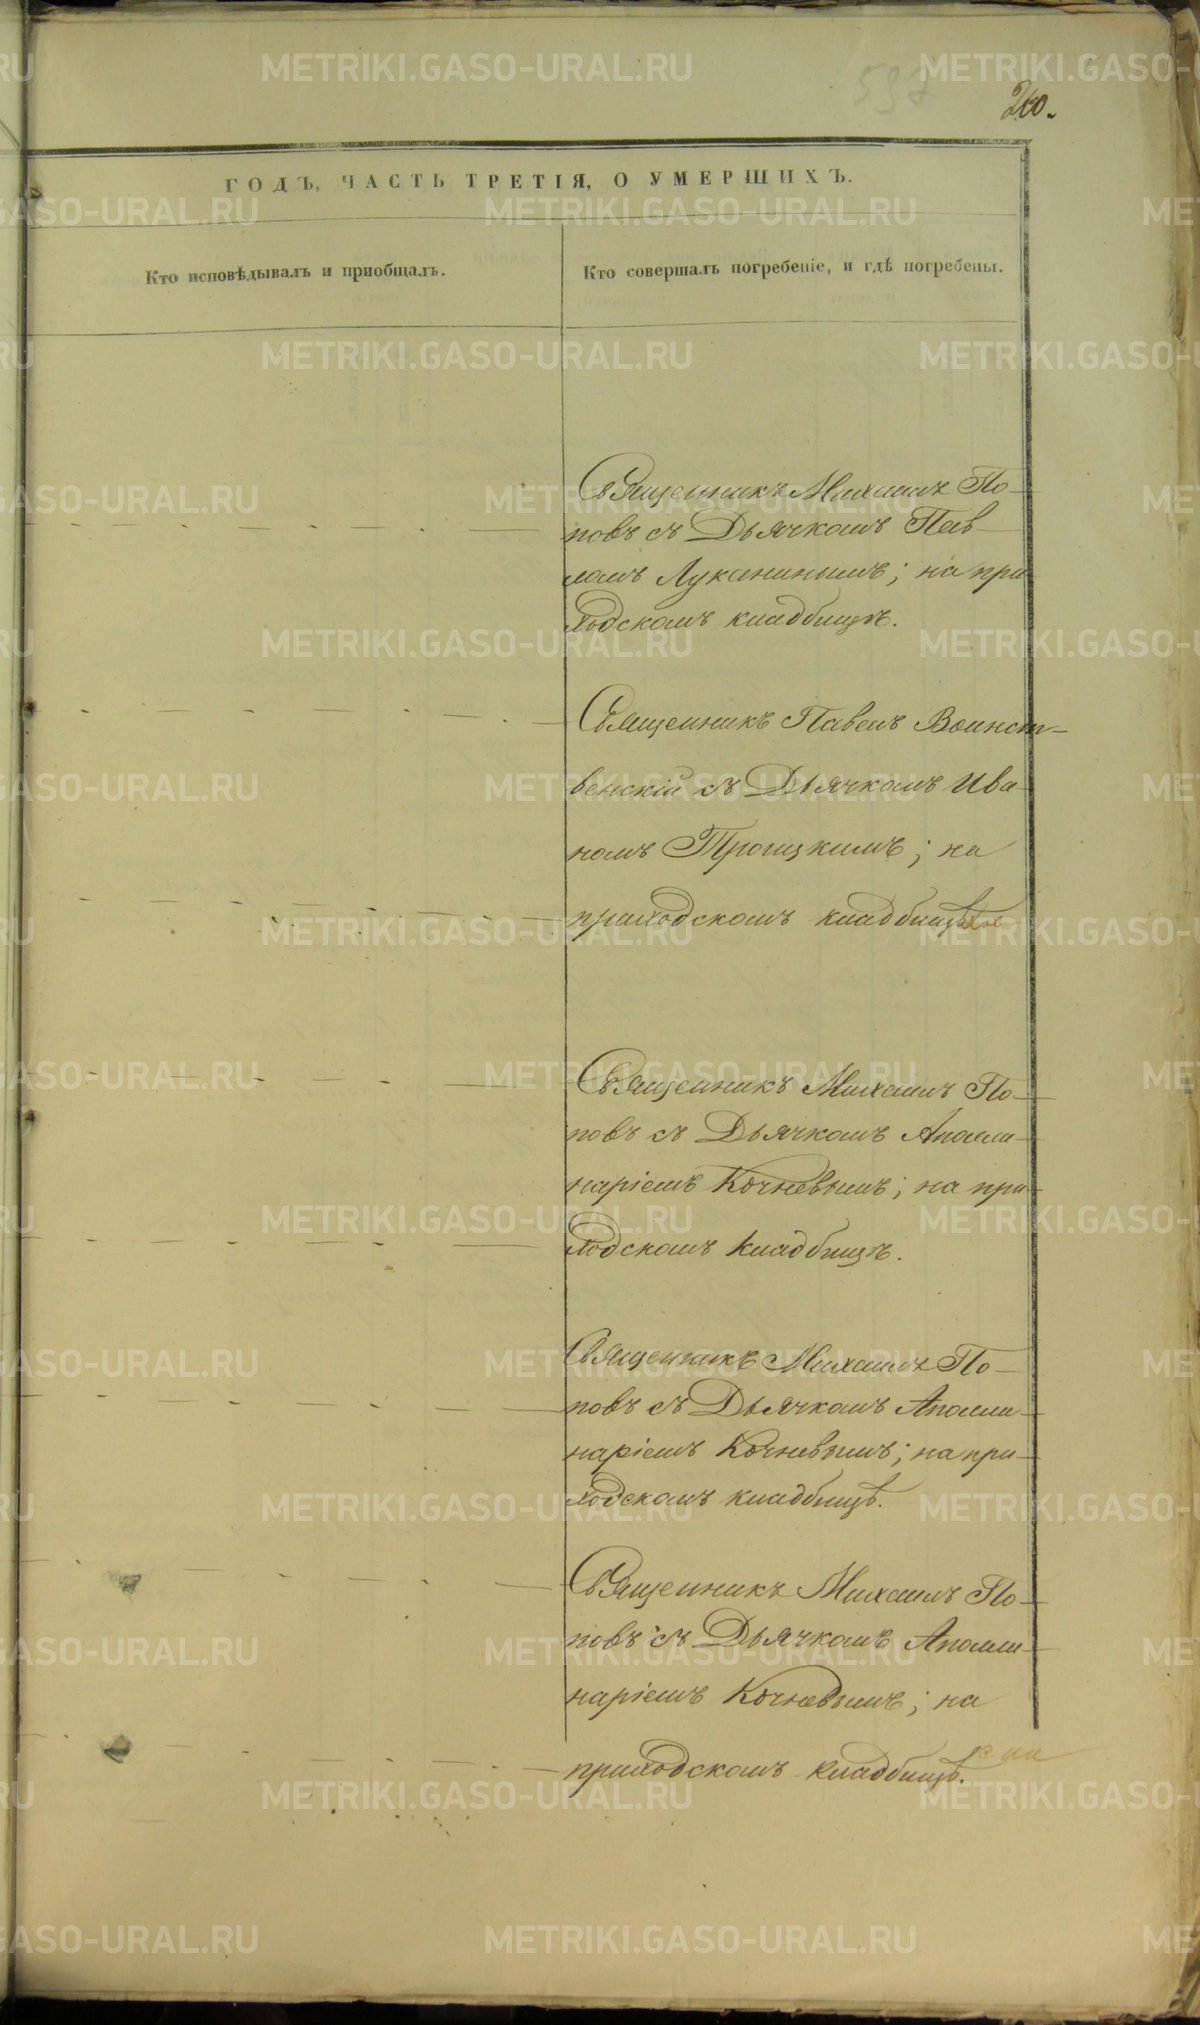 597
260.
ГОДЪ, ЧАСТЬ ТРЕТІЯ, О УМЕРШИХЪ.
Кто исповѣдывалъ и пріобщалъ.
Кто совершалъ погребеніе, и гдѣ погребены.
Священникъ Михаилъ По-
повъ съ Дьячкомъ Пав
ломъ Луканинымъ; на при
ходскомъ кладбищѣ.
Священникъ Павелъ Воинст-
венскій съ Дьячкомъ Ива
номъ Троицкимъ; на
приходскомъ кладбищѣ
Священникъ Михаилъ По-
повъ съ Дьячкомъ Аполли-
наріемъ Кочневымъ; на при-
ходскомъ кладбищѣ.
Священникъ Михаилъ По-
повъ съ Дьячкомъ Аполли-
наріемъ Кочневымъ; на при-
ходскомъ кладбищѣ.
Священникъ Михаилъ По-
повъ съ Дьячкомъ Аполли-
наріемъ Кочневымъ; на
приходскомъ кладбищѣ.
METRIKI.GASO-URAL.RU